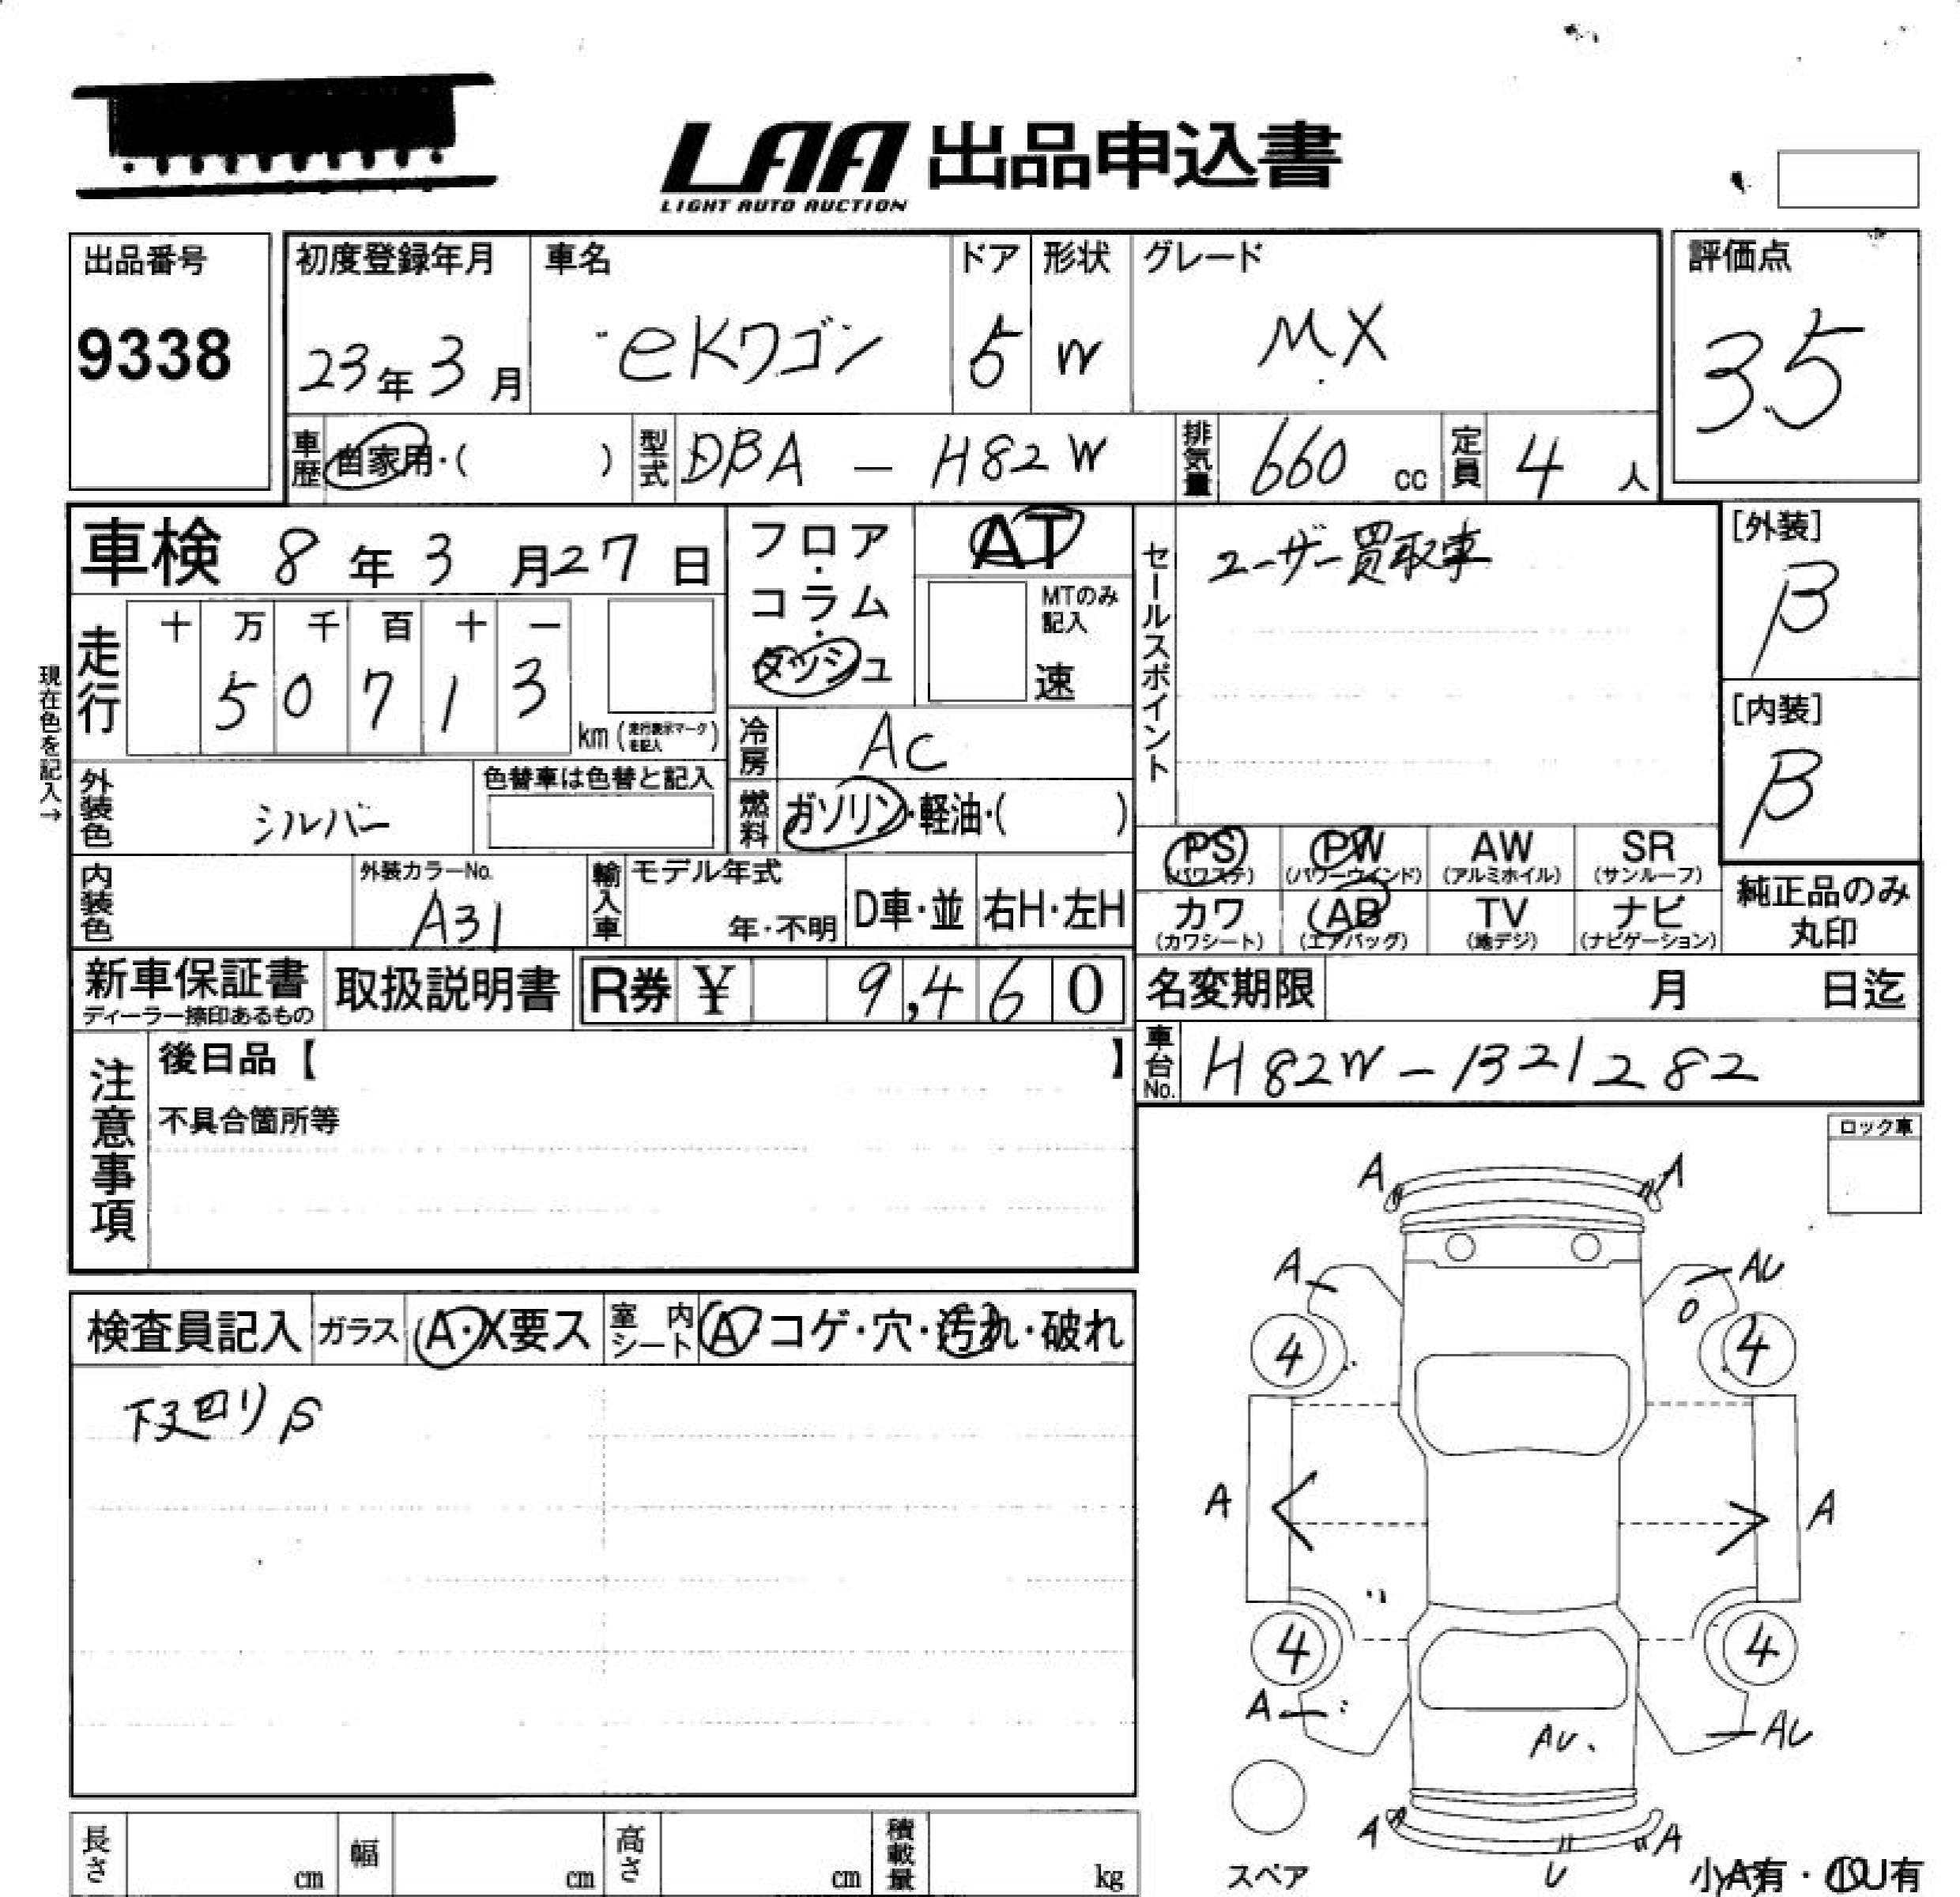 LAA 出品申込書
LIGHT AUTO AUCTION
出品番号
9338
初度登録年月
23年3月
車名
eKワゴン
ドア
5
形状
W
グレード
MX
評価点
3.5
車歴 自家用・( )
型式 DBA - H82W
排気量 660 cc
定員 4 人
車検 8年3月27日
フロア・コラム・ダッシュ
AT
MTのみ記入
速
セールスポイント
ユーザー買取車
[外装]
B
[内装]
B
現在色を記入→
走行
十 万 千 百 十 一
5 0 7 1 3
km (走行表示マークを記入)
冷房 AC
燃料 ガソリン・軽油・( )
外装色 シルバー
色替車は色替と記入
内装色
外装カラーNo.
A31
輸入車 モデル年式
年・不明
D車・並 右H・左H
PS (パワステ)
PW (パワーウインド)
AW (アルミホイル)
SR (サンルーフ)
カワ (カワシート)
AB (エアバッグ)
TV (地デジ)
ナビ (ナビゲーション)
純正品のみ丸印
新車保証書
ディーラー捺印あるもの
取扱説明書
R券 ¥ 9,460
名変期限 月 日迄
車台No. H82W-1321282
注意事項
後日品【 】
不具合箇所等
ロック車
検査員記入 ガラス A・X要ス 室内シート A・コゲ・穴・汚れ・破れ
下廻りS
A A
A AU
4 4
A A
4 4
A AU
AU
A A
U
スペア
小A有・小U有
長さ cm 幅 cm 高さ cm 積載量 kg